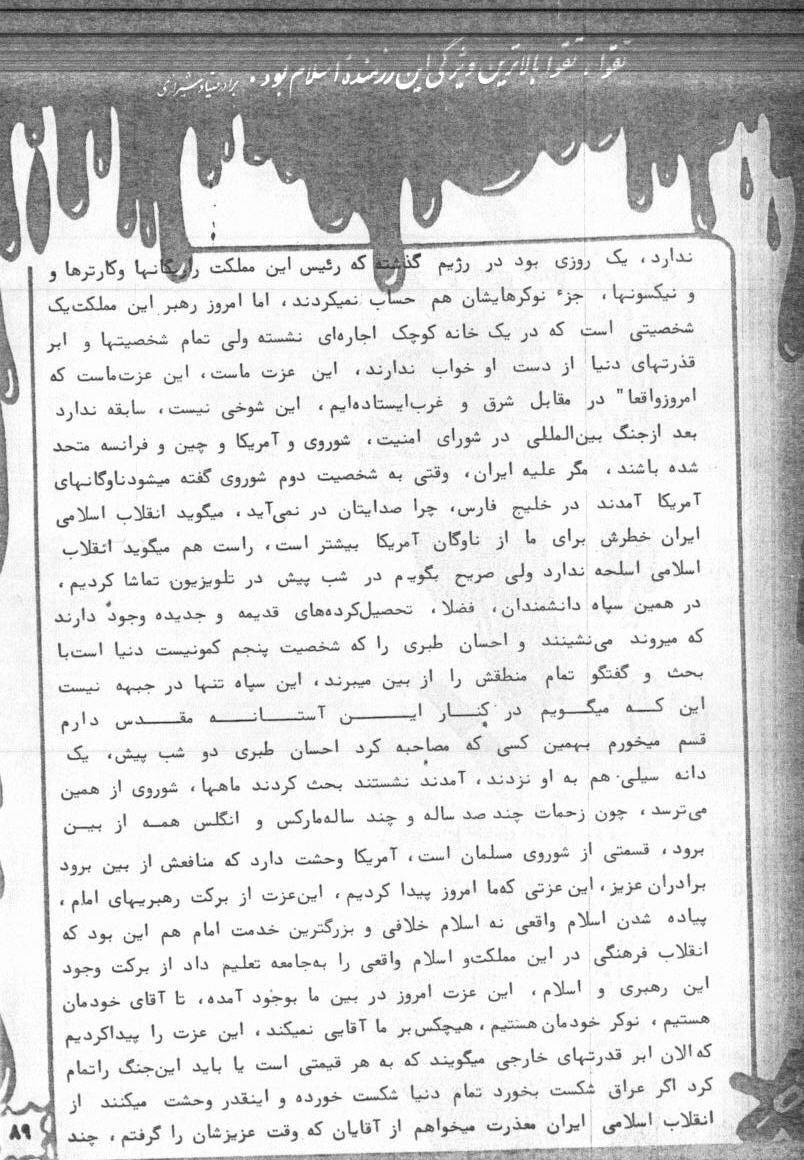 تقوا، تقوا بالاترین ویژگی این رزمندهٔ اسلام بود. برادر صیاد شیرازی
ندارد، یک روزی بود در رژیم گذشته که رئیس این مملکت را ریگانها وکارترها و
و نیکسونها، جزء نوکرهایشان هم حساب نمیکردند، اما امروز رهبر این مملکت‌یک
شخصیتی است که در یک خانه کوچک اجاره‌ای نشسته ولی تمام شخصیتها و ابر
قذرتهای دنیا از دست او خواب ندارند، این عزت ماست، این عزت‌ماست که
امروزواقعا" در مقابل شرق و غرب‌ایستاده‌ایم، این شوخی نیست، سابقه ندارد
بعد ازجنگ بین‌المللی در شورای امنیت، شوروی و آمریکا و چین و فرانسه متحد
شده باشند، مگر علیه ایران، وقتی به شخصیت دوم شوروی گفته میشودناوگانهای
آمریکا آمدند در خلیج فارس، چرا صدایتان در نمی‌آید، میگوید انقلاب اسلامی
ایران خطرش برای ما از ناوگان آمریکا بیشتر است، راست هم میگوید انقلاب
اسلامی اسلحه ندارد ولی صریح بگویم در شب پیش در تلویزیون تماشا کردیم،
در همین سپاه دانشمندان، فضلا، تحصیل‌کرده‌های قدیمه و جدیده وجود دارند
که میروند می‌نشینند و احسان طبری را که شخصیت پنجم کمونیست دنیا است‌با
بحث و گفتگو تمام منطقش را از بین میبرند، این سپاه تنها در جبهه نیست
این کـه میگـویم در کنـار ایـن آستـانـه مقـدس دارم
قسم میخورم بهمین کسی که مصاحبه کرد احسان طبری دو شب پیش، یک
دانه سیلی هم به او نزدند، آمدند نشستند بحث کردند ماهها، شوروی از همین
می‌ترسد، چون زحمات چند صد ساله و چند ساله‌مارکس و انگلس همـه از بیـن
برود، قسمتی از شوروی مسلمان است، آمریکا وحشت دارد که منافعش از بین برود
برادران عزیز، این عزتی که‌ما امروز پیدا کردیم، این‌عزت از برکت رهبریهای امام،
پیاده شدن اسلام واقعی نه اسلام خلافی و بزرگترین خدمت امام هم این بود که
انقلاب فرهنگی در این مملکت‌و اسلام واقعی را به‌جامعه تعلیم داد از برکت وجود
این رهبری و اسلام، این عزت امروز در بین ما بوجود آمده، تا آقای خودمان
هستیم، نوکر خودمان هستیم، هیچکس‌بر ما آقایی نمیکند، این عزت را پیداکردیم
که‌الان ابر قدرتهای خارجی میگویند که به هر قیمتی است یا باید این‌جنگ راتمام
کرد اگر عراق شکست بخورد تمام دنیا شکست خورده و اینقدر وحشت میکنند از
انقلاب اسلامی ایران معذرت میخواهم از آقایان که وقت عزیزشان را گرفتم، چند
۸۹